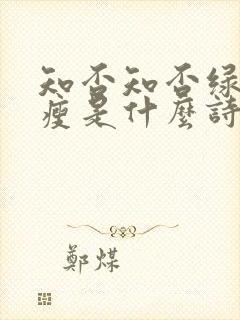 知否知否绿
瘦是什麼詩
鄭煤